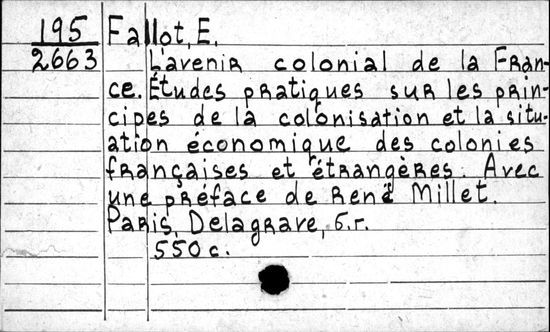 195 Fallot, E.
2663 L'avenir colonial de la Fran-
ce. Études pratiques sur les prin-
cipes de la colonisation et la situ-
ation économique des colonies
françaises et étrangères. Avec
une préface de René Millet.
Paris, Delagrave, б.г.
550 с.